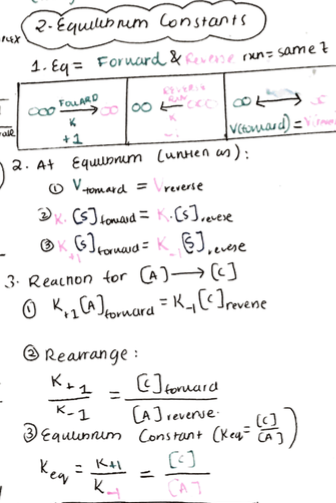 2. Equilibrium Constants
1. Eq = Forward & Reverse rxn = same?
FORWARD
K
+1
REVERSE
RXN
K
-1
V(forward) =
2. At Equilibrium (written as):
① Vforward = Vreverse
② K.[S]forward = K.[S]reverse
③ K+1[S]forward = K-1[S]reverse
3. Reaction for [A] → [C]
① K+1[A]forward = K-1[C]reverse
② Rearrange:
K+1/K-1 = [C]forward/[A]reverse
③ Equilibrium Constant (Keq = [C]/[A])
Keq = K+1/K-1 = [C]/[A]